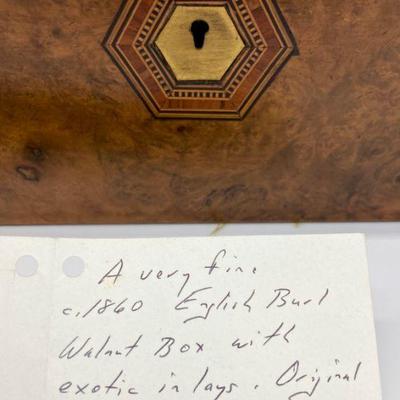 A very fine
c.1860 English Burl
Walnut Box with
exotic in lays. Original